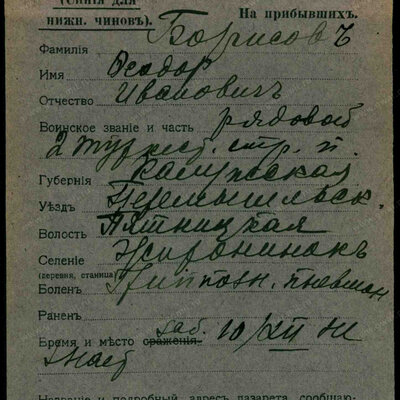 (Синія для
нижн. чиновъ).
На прибывшихъ.
Фамилія Борисовъ
Имя Феодор
Отчество Ивановичъ
Воинское званіе и часть рядовой
2 Туркест. стр. п.
Губернія Калужская
Уѣздъ Перемышльск.
Волость Пятницкая
Селеніе
(деревня, станица)
Боленъ Гриппозн. пневмон
Раненъ
Время и мѣсто сраженія заб. 10/XII
Названіе и подробный адресъ лазарета, сообщаю-